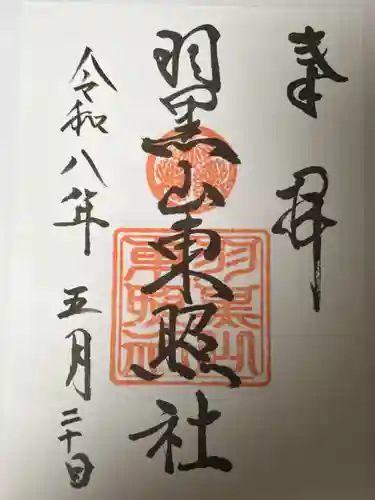 奉拝
羽黒山東照社
令和八年五月二十日
羽黒山
東照社